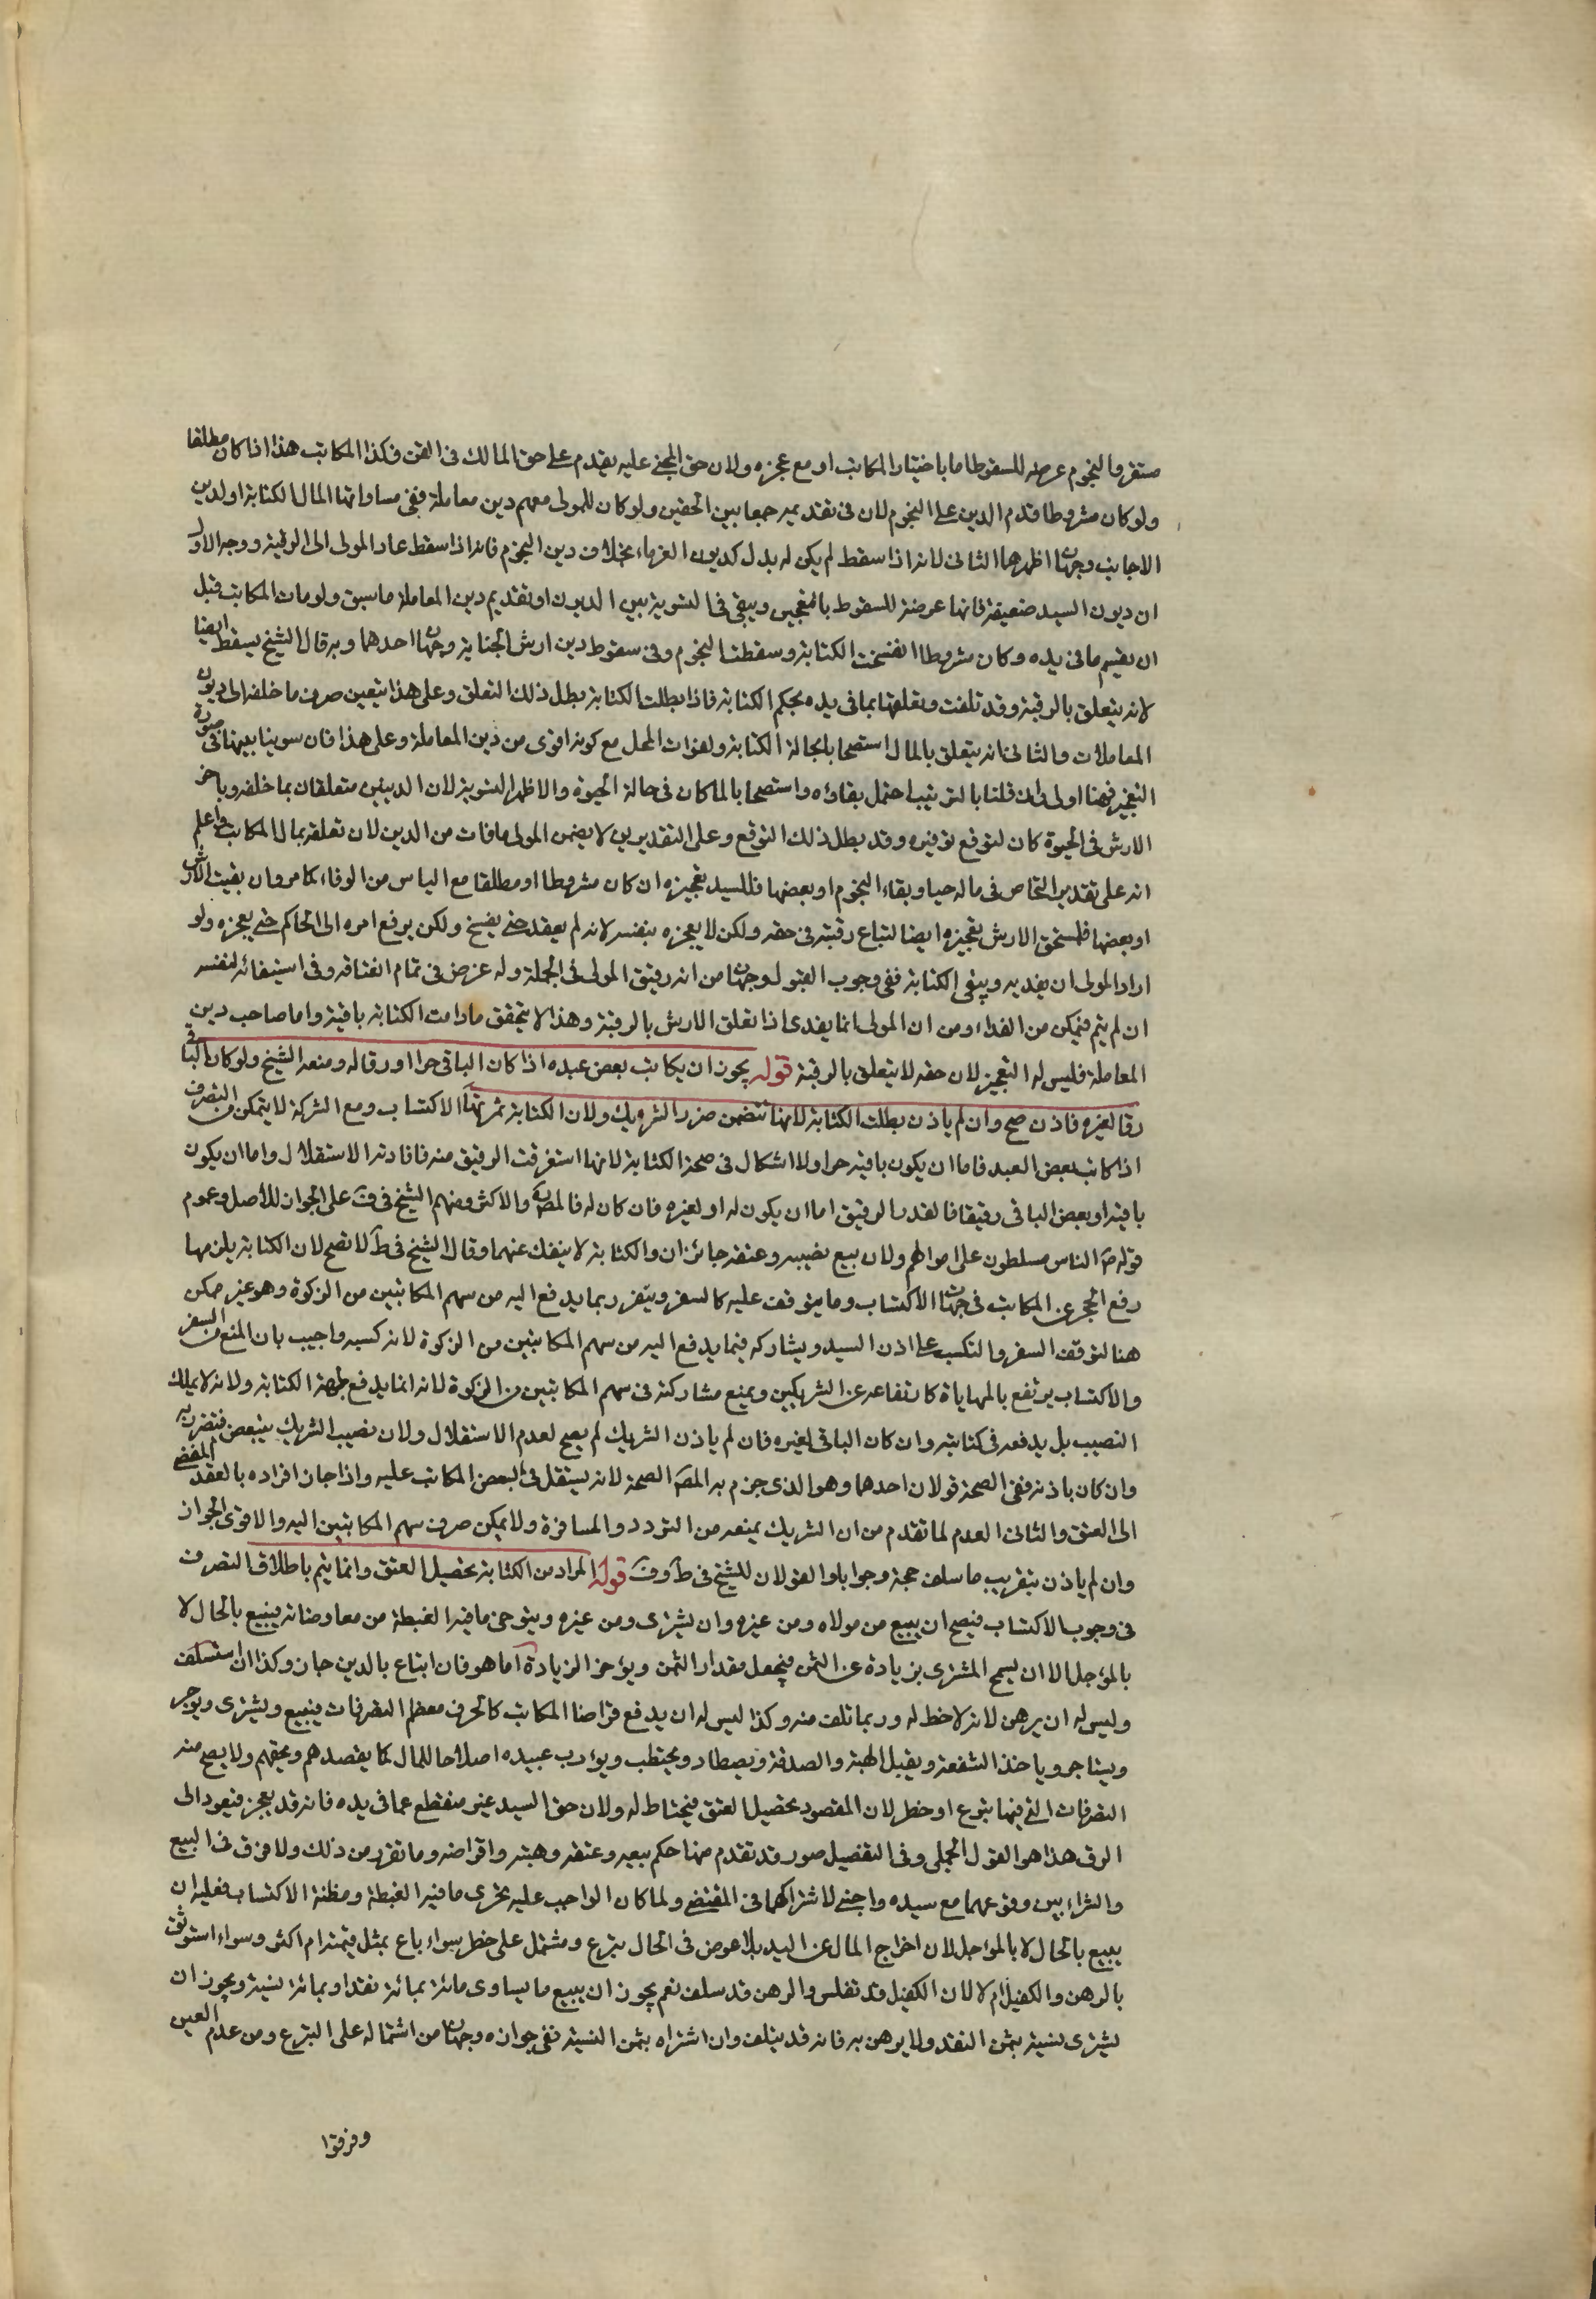 مستقر والنجوم عرضه للسقوط اما باختيار المكاتب او مع عجزه ولان حق المجنى عليه يقدم على حق المالك فى القن فكذا المكاتب هذا اذا كان مطلقا
ولو كان مشروطا قدم الدين على النجوم لان فى تقديمه جمعا بين الحقين ولو كان للمولى معهم دين معاملة ففى مساواتها المال الكتابة او لدين
الاجانب وجهان اظهرهما الثانى لانه اذا سقط لم يكن له بدل كديون الغرماء بخلاف دين النجوم فانه اذا سقط عاد المولى الى الرقبة ووجه الاول
ان ديون السيد ضعيفة فانها عرضة للسقوط بالتعجيز ويبقى فى التسوية بين الديون او تقديم دين المعاملة ما سبق ولو مات المكاتب قبل
ان يقسم ما فى يده وكان مشروطا انفسخت الكتابة وسقطت النجوم وفى سقوط دين ارش الجناية وجهان احدهما وبه قال الشيخ يسقط ايضا
لانه يتعلق بالرقبة وقد تلفت وتعلقها بما فى يده بحكم الكتابة فاذا بطلت الكتابة بطل ذلك التعلق وعلى هذا يتعين صرف ما خلفه الى ديون
المعاملات والثانى انه يتعلق بالمال استصحابا لحالة الكتابة ولفوات المحل مع كونه اقوى من دين المعاملة وعلى هذا فان سوينا بينهما فى صورة
التعجيز فهنا اولى وان قلنا بالترتيب احتمل بقاؤه واستصحابا لما كان فى حالة الحيوة والاظهر التسوية لان الدينين متعلقان بما خلفه وتاخر
الارش فى الحيوة كان لتوقع توفيره وقد بطل ذلك التوقع وعلى التقديرين لا يضمن المولى ما فات من الدين لان تعلقه بمال المكاتب واعلم
انه على تقدير التخاص فى ماله حيا وبقاء النجوم او بعضها فللسيد تعجيزه ان كان مشروطا او مطلقا مع الياس من الوفاء كما مر وان بقيت الارش
او بعضها فلمستحق الارش تعجيزه ايضا لتباع رقبته فى حقه ولكن لا يعجزه بنفسه لانه لم يعقد حتى يفسخ ولكن يرفع امره الى الحاكم حتى يعجزه ولو
اراد المولى ان يفديه ويبقى الكتابة ففى وجوب القبول وجهان من انه رقيق المولى فى الجملة وله غرض فى تمام انعتاقه وفى استبقائه لنفسه
ان لم يتم فيمكن من الفداء ومن ان المولى انما يفدى اذا تعلق الارش بالرقبة وهذا لا يتحقق ما دامت الكتابة باقية واما صاحب دين
المعاملة فليس له التعجيز لان حقه لا يتعلق بالرقبة قوله يجوز ان يكاتب بعض عبده اذا كان الباقى حرا او رقا له ومنعه الشيخ ولو كان الباقى
رقا لغيره فاذن صح وان لم ياذن بطلت الكتابة لانها تتضمن ضرر الشريك ولان الكتابة ثمرتها الاكتساب ومع الشركة لا يتمكن من التصرف
اذا كاتب بعض العبد فاما ان يكون باقيه حرا ولا اشكال فى صحة الكتابة لانها استغرقت الرقيق منه فافادته الاستقلال واما ان يكون
باقيه او بعض الباقى رقيقا فالقدر الرقيق اما ان يكون له او لغيره فان كان له فالمصنف والاكثر ومنهم الشيخ فى ف على الجواز للاصل وعموم
قوله ص الناس مسلطون على اموالهم ولان بيع نصيبه وعتقه جائزان والكتابة لا ينفك عنهما وقال الشيخ فى ط لا تصح لان الكتابة يلزمها
رفع الحجر عن المكاتب فى جهات الاكتساب وما يتوقف عليه كالسفر ويتفرد بما يدفع اليه من سهم المكاتبين من الزكوة وهو غير ممكن
هنا لتوقف السفر والتكسب على اذن السيد ويشاركه فيما يدفع اليه من سهم المكاتبين من الزكوة لانه كسبه واجيب بان المنع من السفر
والاكتساب يرتفع بالمهاياة كارتفاعه عن الشريكين ويمنع مشاركته فى سهم المكاتبين من الزكوة لانه انما يدفع لجهة الكتابة ولانه لا يملك
النصيب بل يدفعه فى كتابته وان كان الباقى لغيره فان لم ياذن الشريك لم يصح لعدم الاستقلال ولان نصيب الشريك يتبعض فيتضرر به
وان كان باذنه ففى الصحة قولان احدهما وهو الذى جزم به المصنف الصحة لانه يستقل فى البعض المكاتب عليه واذا جاز افراده بالعقد المفضى
الى العتق والثانى العدم لما تقدم من ان الشريك يمنعه من التردد والمسافرة ولا يمكن صرف سهم المكاتبين اليه والاقوى الجواز
وان لم ياذن بتقريب ما سلف حجة وجوابا والقولان للشيخ فى ط وف قوله المراد من الكتابة تحصيل العتق وانما يتم باطلاق التصرف
فى وجوب الاكتساب فيصح ان يبيع من مولاه ومن غيره وان يشترى ومن غيره ويتوخى ما فيه الغبطة من معاوضاته يبيع بالحال لا
بالمؤجل الا ان يسمح المشترى بزيادة عن الثمن فيجعل مقدار الثمن ويؤخر الزيادة اما هو فان ابتاع بالدين جاز وكذا ان استسلف
وليس له ان يرهن لانه لا حظ له وربما تلف منه وكذا ليس له ان يدفع قراضا المكاتب كالحر فى معظم التصرفات فيبيع ويشترى ويوجر
ويستاجر وياخذ الشفعة ويقبل الهبة والصدقة ويصطاد ويحتطب ويؤدب عبيده اصلاحا للمال كما يفصدهم ويحجمهم ولا يصح منه
التصرفات التى فيها تبرع او خطر لان المقصود تحصيل العتق فيحتاط له ولان حق السيد غير منقطع عما فى يده فانه قد يعجز فيعود الى
الرق هذا هو القول الجملى وفى التفصيل صور قد تقدم منها حكم بيعه وعتقه وهبته واقراضه وما تقرر من ذلك ولا فرق فى البيع
والشراء بين وقوعهما مع سيده واجنبى لاشتراكهما فى المقتضى ولما كان الواجب عليه تحرى ما فيه الغبطة ومظنة الاكتساب فعليه ان
يبيع بالحال لا بالمؤجل لان اخراج المال عن اليد بلا عوض فى الحال تبرع ومشتمل على خطر سواء باع بمثل قيمته ام اكثر وسواء استوثق
بالرهن والكفيل ام لا لان الكفيل قد تفلس والرهن قد سلف نعم يجوز ان يبيع ما يساوى مائة بمائة نقدا وبمائة نسية ويجوز ان
يشترى نسية بثمن النقد ولا يرهن به فانه قد يتلف وان اشتراه بثمن النسية ففى جوازه وجهان من اشتماله على التبرع ومن عدم العين
وفرقوا